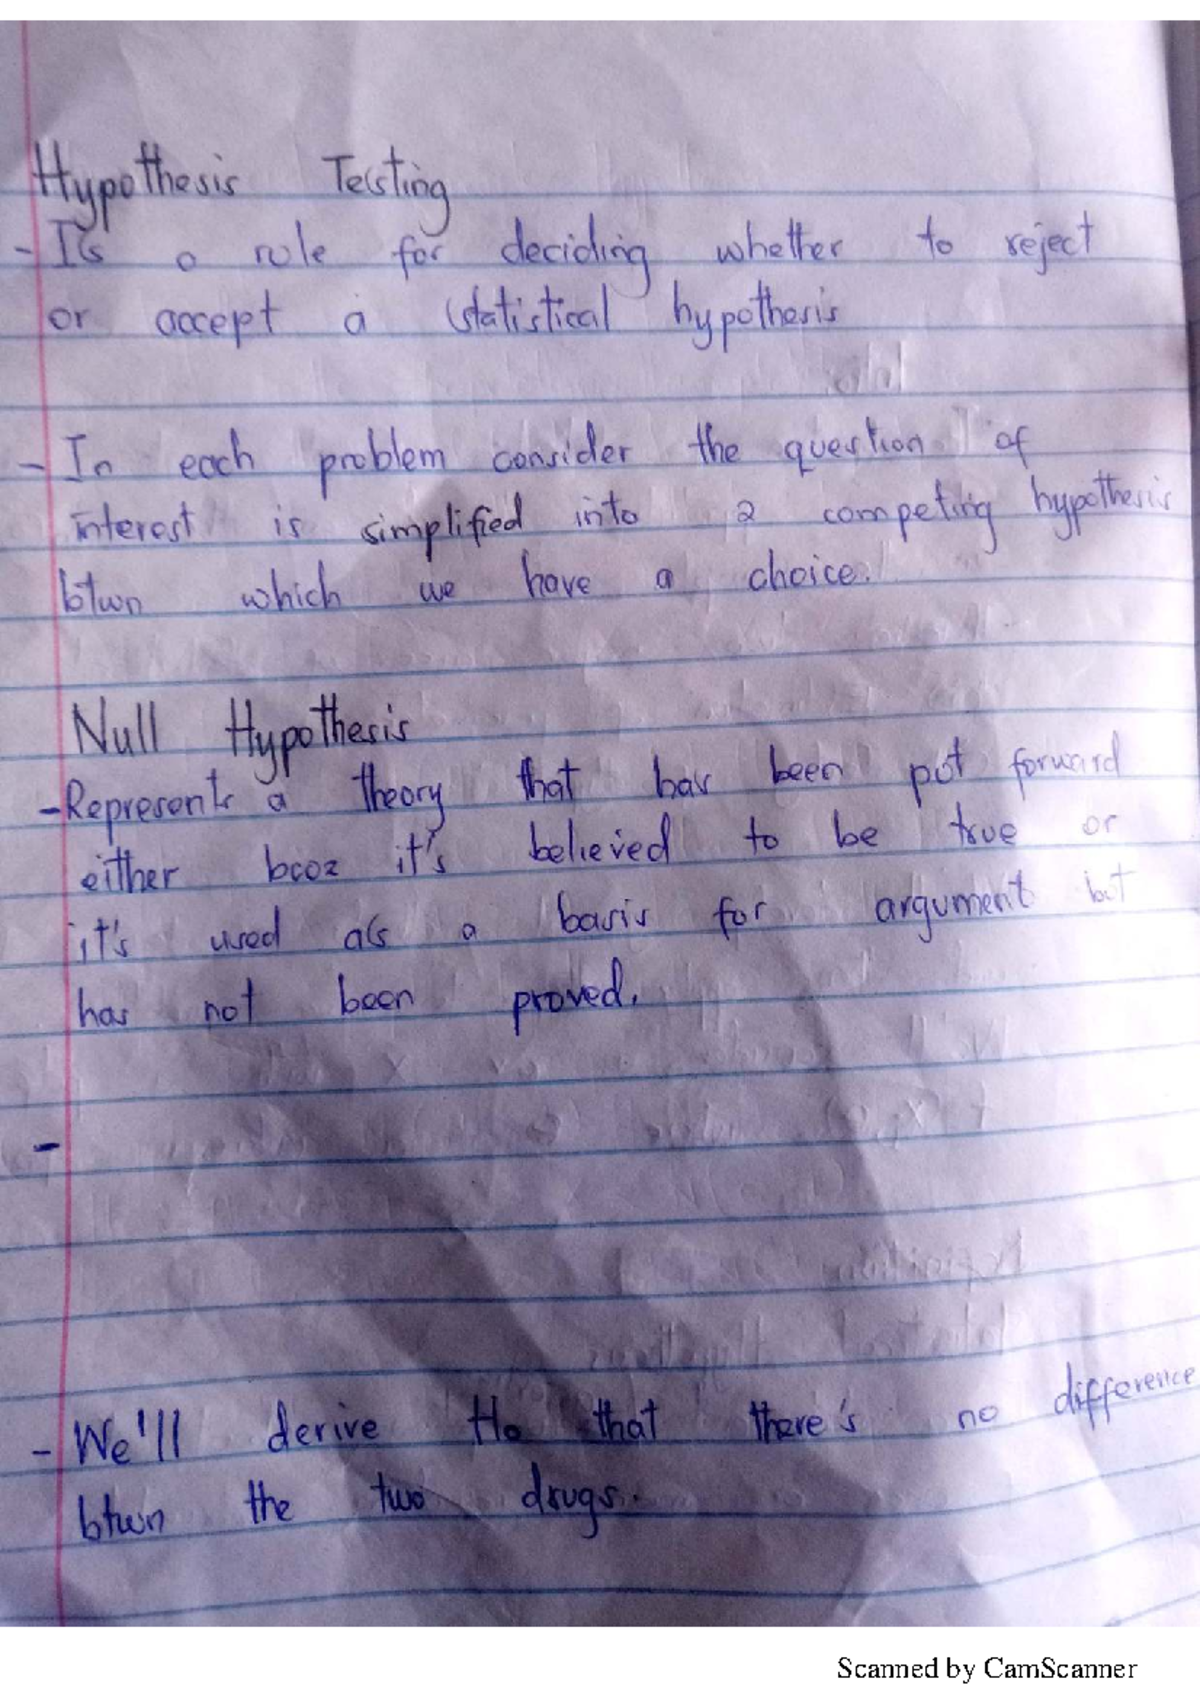 Hypothesis Testing
- It's a rule for deciding whether to reject
or accept a statistical hypothesis
- In each problem consider the question of
interest is simplified into 2 competing hypothesis
btwn which we have a choice.
Null Hypothesis
- Represents a theory that has been put forward
either bcoz it's believed to be true or
it's used as a basis for argument but
has not been proved.
-
- We'll derive Ho that there's no difference
btwn the two drugs.
Scanned by CamScanner